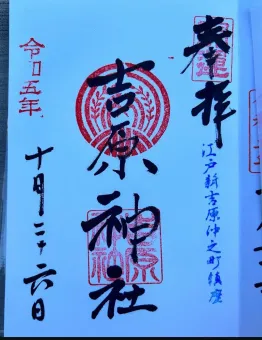 奉拝
江戸新吉原仲之町鎮座
吉原神社
令和五年
十月二十六日